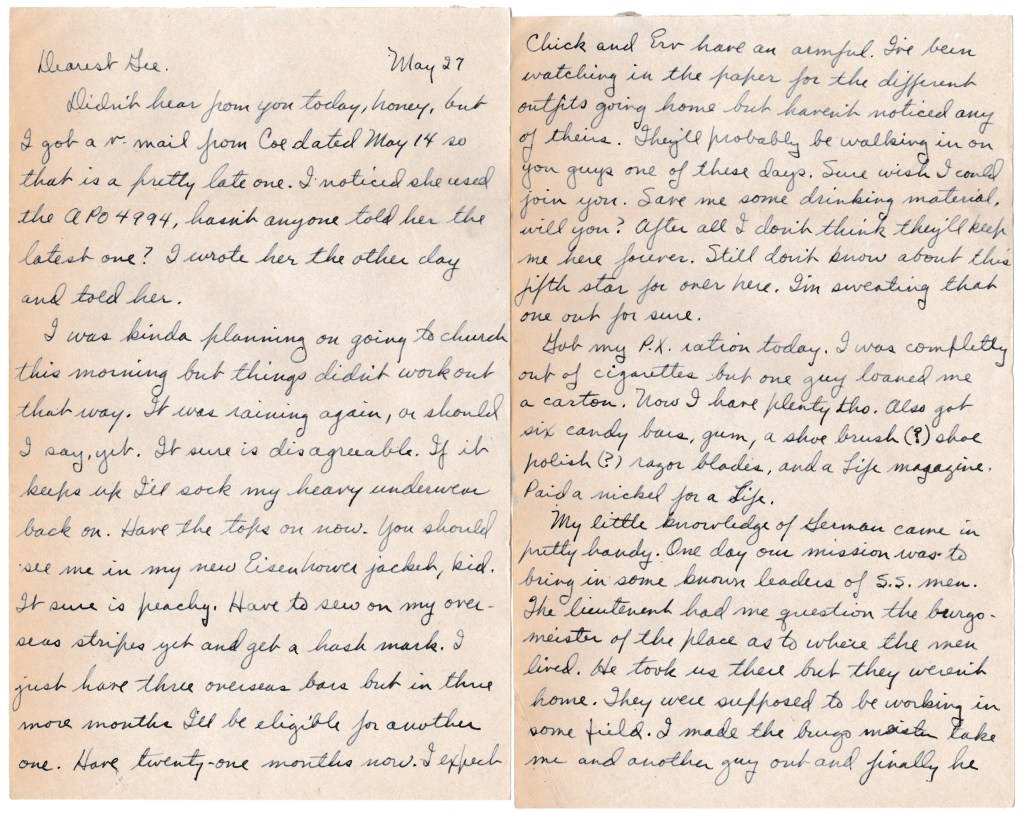 Dearest Gee. May 27
Didn't hear from you today, honey, but
I got a v-mail from Coe dated May 14 so
that is a pretty late one. I noticed she used
the APO 4994, hasn't anyone told her the
latest one? I wrote her the other day
and told her.
I was kinda planning on going to church
this morning but things didn't work out
that way. It was raining again, or should
I say, yet. It sure is disagreeable. If it
keeps up I'll sock my heavy underwear
back on. Have the tops on now. You should
see me in my new Eisenhower jacket, kid.
It sure is peachy. Have to sew on my over-
seas stripes yet and get a hash mark. I
just have three overseas bars but in three
more months I'll be eligible for another
one. Have twenty-one months now. I expect
Chick and Erv have an armful. I've been
watching in the paper for the different
outfits going home but haven't noticed any
of theirs. They'll probably be walking in on
you guys one of these days. Sure wish I could
join you. Save me some drinking material,
will you? After all I don't think they'll keep
me here forever. Still don't know about this
fifth star for over here. I'm sweating that
one out for sure.
Got my P.X. ration today. I was completly
out of cigarettes but one guy loaned me
a carton. Now I have plenty tho. Also got
six candy bars, gum, a shoe brush (?) shoe
polish (?) razor blades, and a Life magazine.
Paid a nickel for a Life.
My little knowledge of German came in
pretty handy. One day our mission was to
bring in some known leaders of S.S. men.
The lieutenent had me question the burgo-
meister of the place as to where the men
lived. He took us there but they weren't
home. They were supposed to be working in
some field. I made the burgo meister take
me and another guy out and finally he